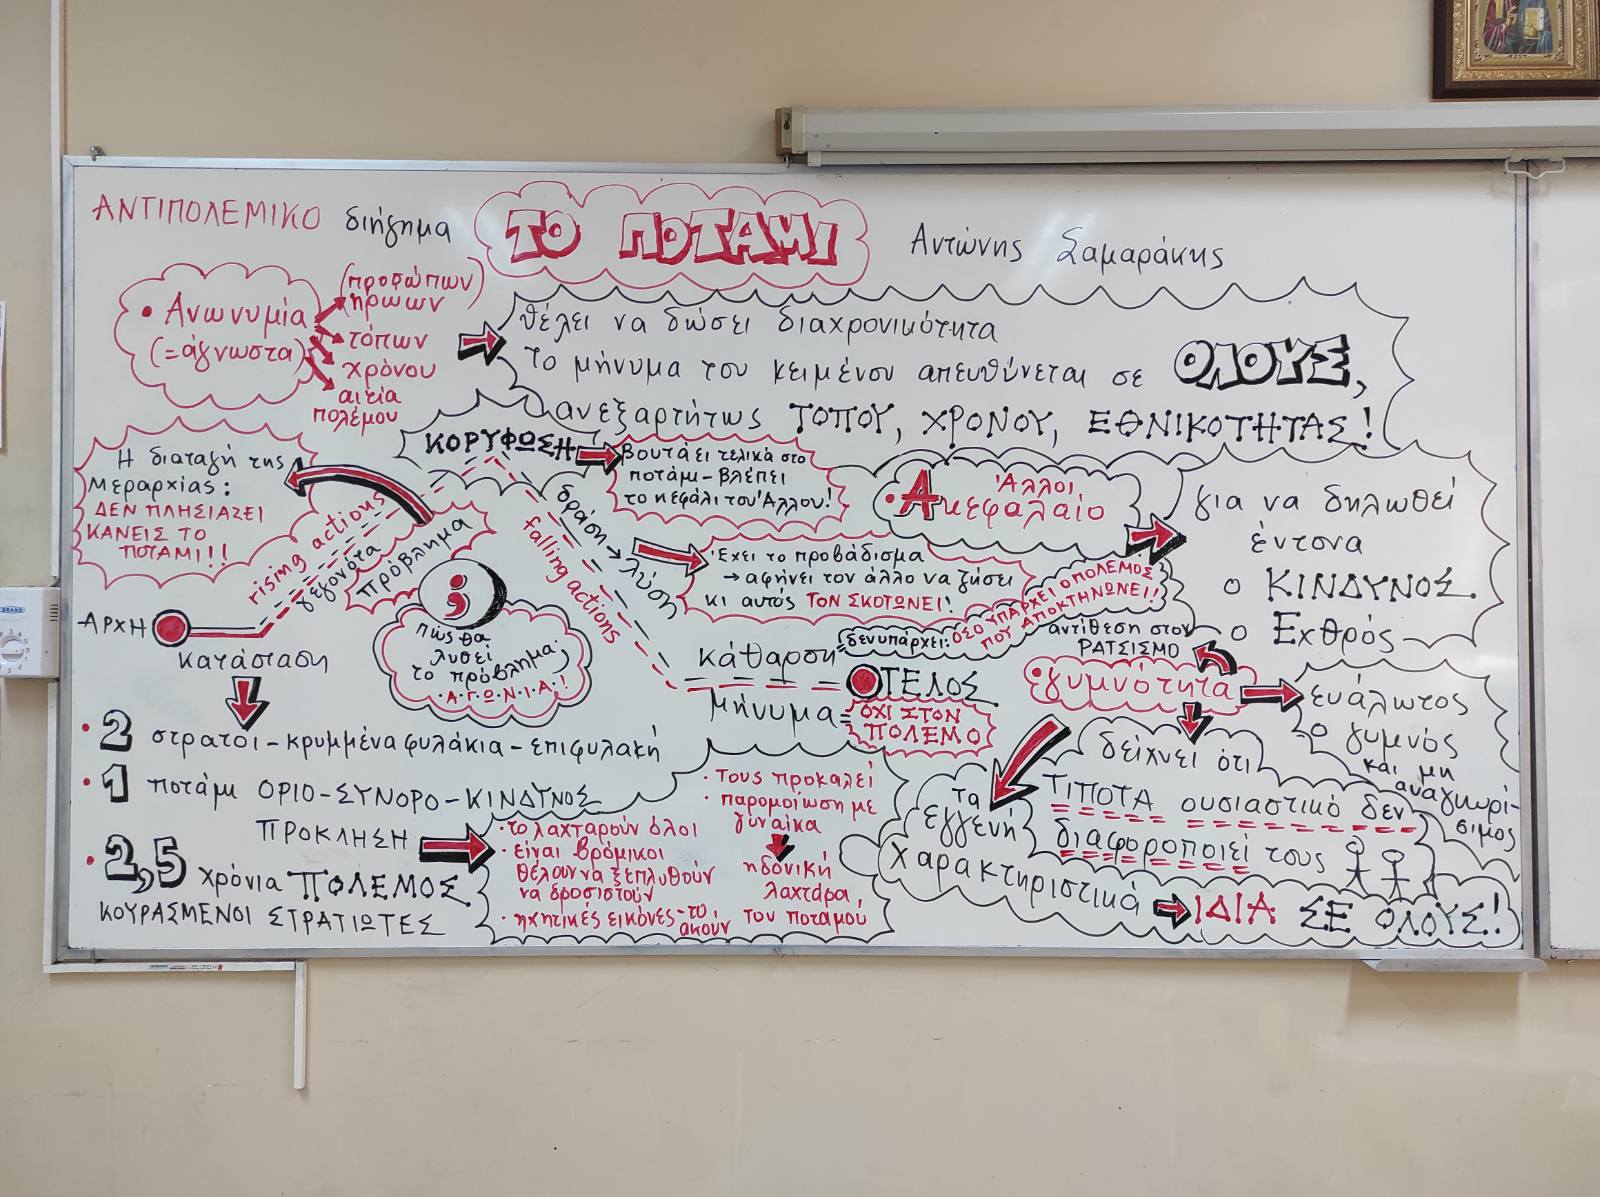 ΑΝΤΙΠΟΛΕΜΙΚΟ διήγημα
ΤΟ ΠΟΤΑΜΙ
Αντώνης Σαμαράκης
• Ανωνυμία
(=άγνωστα)
(προσώπων)
ηρώων
τόπων
χρόνου
αιτία
πολέμου
θέλει να δώσει διαχρονικότητα
το μήνυμα του κειμένου απευθύνεται σε ΟΛΟΥΣ,
ανεξαρτήτως ΤΟΠΟΥ, ΧΡΟΝΟΥ, ΕΘΝΙΚΟΤΗΤΑΣ!
Η διαταγή της
Μεραρχίας:
ΔΕΝ ΠΛΗΣΙΑΖΕΙ
ΚΑΝΕΙΣ ΤΟ
ΠΟΤΑΜΙ!!
ΚΟΡΥΦΩΣΗ
βουτάει τελικά στο
ποτάμι-βλέπει
το κεφάλι του Άλλου!
rising actions
γεγονότα
πρόβλημα
;
πώς θα
λυθεί
το πρόβλημα;
·Α·Γ·Ω·Ν·Ι·Α·!
δράση → λύση
falling actions
Έχει το προβάδισμα
→ αφήνει τον άλλο να ζήσει
κι αυτός ΤΟΝ ΣΚΟΤΩΝΕΙ!
• Α κεφαλαίο
Άλλοι
για να δηλωθεί
έντονα
ο ΚΙΝΔΥΝΟΣ
ο Εχθρός
ΑΡΧΗ
κατάσταση
κάθαρση
δεν υπάρχει: ΟΣΟ ΥΠΑΡΧΕΙ Ο ΠΟΛΕΜΟΣ
ΠΟΥ ΑΠΟΚΤΗΝΩΝΕΙ!
ΤΕΛΟΣ
μήνυμα = ΟΧΙ ΣΤΟΝ
ΠΟΛΕΜΟ
αντίθεση στον
ΡΑΤΣΙΣΜΟ
• γυμνότητα
ευάλωτος
ο γυμνός
και μη
αναγνωρί-
σιμος
δείχνει ότι
ΤΙΠΟΤΑ ουσιαστικό δεν
διαφοροποιεί τους
τα
εγγενή
χαρακτηριστικά
ΙΔΙΑ ΣΕ ΟΛΟΥΣ!
• 2 στρατοί-κρυμμένα φυλάκια-επιφυλακή
• 1 ποτάμι ΟΡΙΟ-ΣΥΝΟΡΟ-ΚΙΝΔΥΝΟΣ
ΠΡΟΚΛΗΣΗ
• 2,5 χρόνια ΠΟΛΕΜΟΣ
ΚΟΥΡΑΣΜΕΝΟΙ ΣΤΡΑΤΙΩΤΕΣ
• το λαχταρούν όλοι
• είναι βρόμικοι
θέλουν να ξεπλυθούν
να δροσιστούν
• ηχητικές εικόνες-το
ακούν
• τους προκαλεί
• παρομοίωση με
γυναίκα
ηδονική
λαχτάρα,
του ποταμού